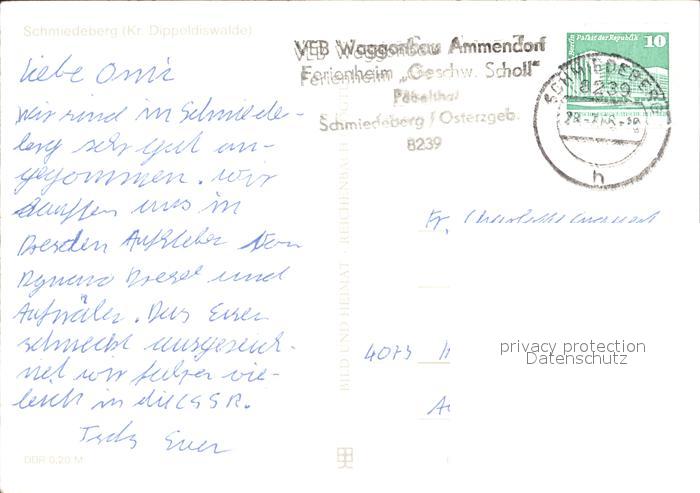 Schmiedeberg (Kr. Dippoldiswalde)
VEB Waggonbau Ammendorf
Ferienheim „Geschw. Scholl"
Pöbeltal
Schmiedeberg / Osterzgeb.
8239
Berlin Palast der Republik
10
SCHMIEDEBERG
8239
h
Liebe Omi
wir sind in Schmiede-
berg sehr gut an-
gekommen. Wir
kauften uns in
Dresden Aufkleber von
Dynamo Dresd und
Aufnäher. Das Essen
schmeckt ausgezeich-
net wir fahren vie-
leicht in die CSSR.
Tschs Euer
Fr.
4073
BILD UND HEIMAT REICHENBACH
privacy protection
Datenschutz
DDR 0,20 M